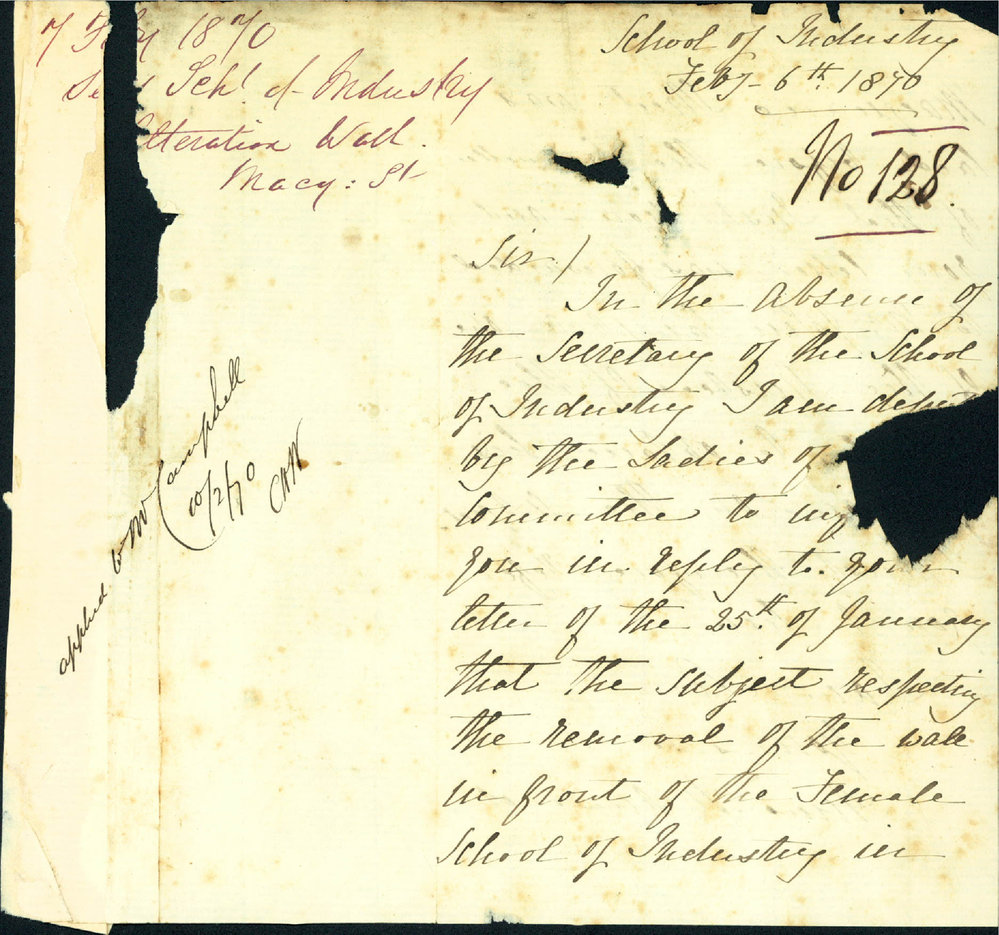 7 1870
Schl of Industry
Alteration Wall.
Macq: St
School of Industry
Feby 6th 1870
No 128.
Sir/
In the absence of
the Secretary of the School
of Industry I am
by the Ladies of
Committee to
you in reply to your
letter of the 25th of January
that the subject respecting
the removal of the wall
in front of the Female
School of Industry in
Campbell
10/2/70